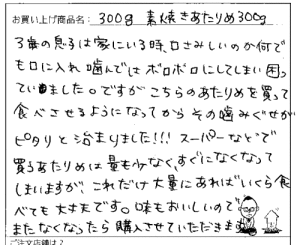 お買い上げ商品名： 300g 素焼きあたりめ300g
3歳の息子は家にいる時、口さみしいのか何で
も口に入れ噛んではボロボロにしてしまい困っ
ていました。ですがこちらのあたりめを買って
食べさせるようになってからその噛みぐせが
ピタリと治まりました!!! スーパーなどで
買うあたりめは量も少なく、すぐになくなって
しまいますが、これだけ大量にあればいくら食
べても大丈夫です。味もおいしいので
またなくなったら購入させていただきます
ご注文店舗は？